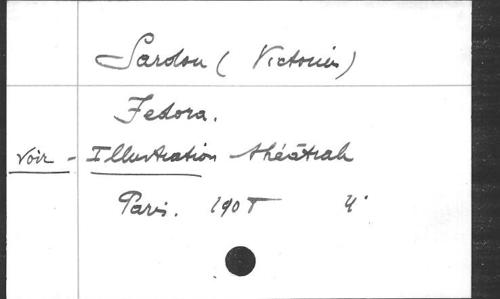 Sardou (Victorien)
Fedora.
Voir - Illustration théâtrale
Paris. 1908 4°